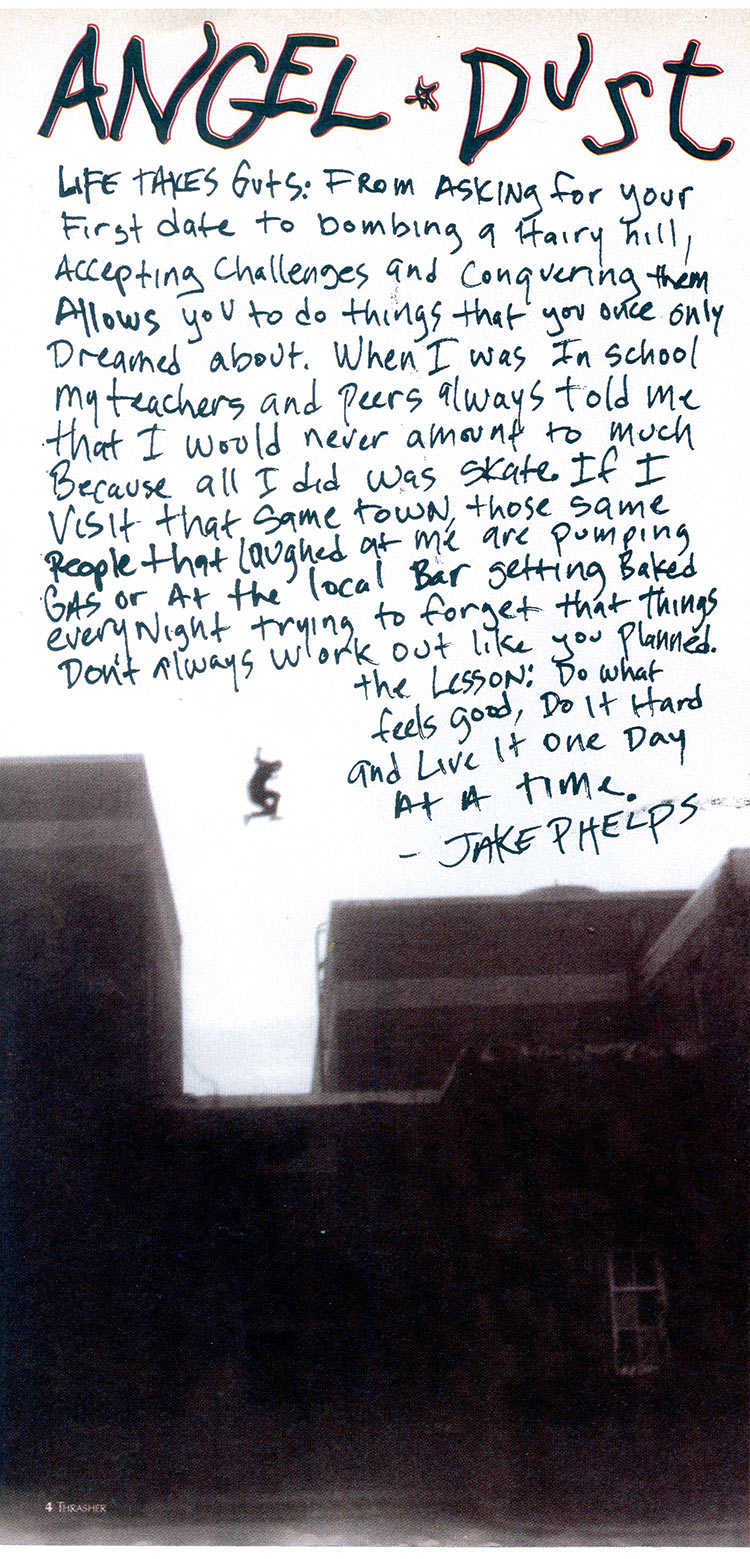 ANGEL ★ DUST
LIFE TAKES GUTS: FROM ASKING for your
First date to bombing a Hairy hill,
Accepting Challenges and Conquering them
Allows you to do things that you once only
Dreamed about. When I was In school
my teachers and Peers always told me
that I would never amount to much
Because all I did was skate. If I
Visit that same town, those same
People that laughed at me are pumping
GAS or At the local Bar getting Baked
every Night trying to forget that things
Don't Always work out like you Planned.
the LESSON: Do what
feels good, Do It Hard
and Live It One Day
At A time.
- JAKE PHELPS
4 THRASHER